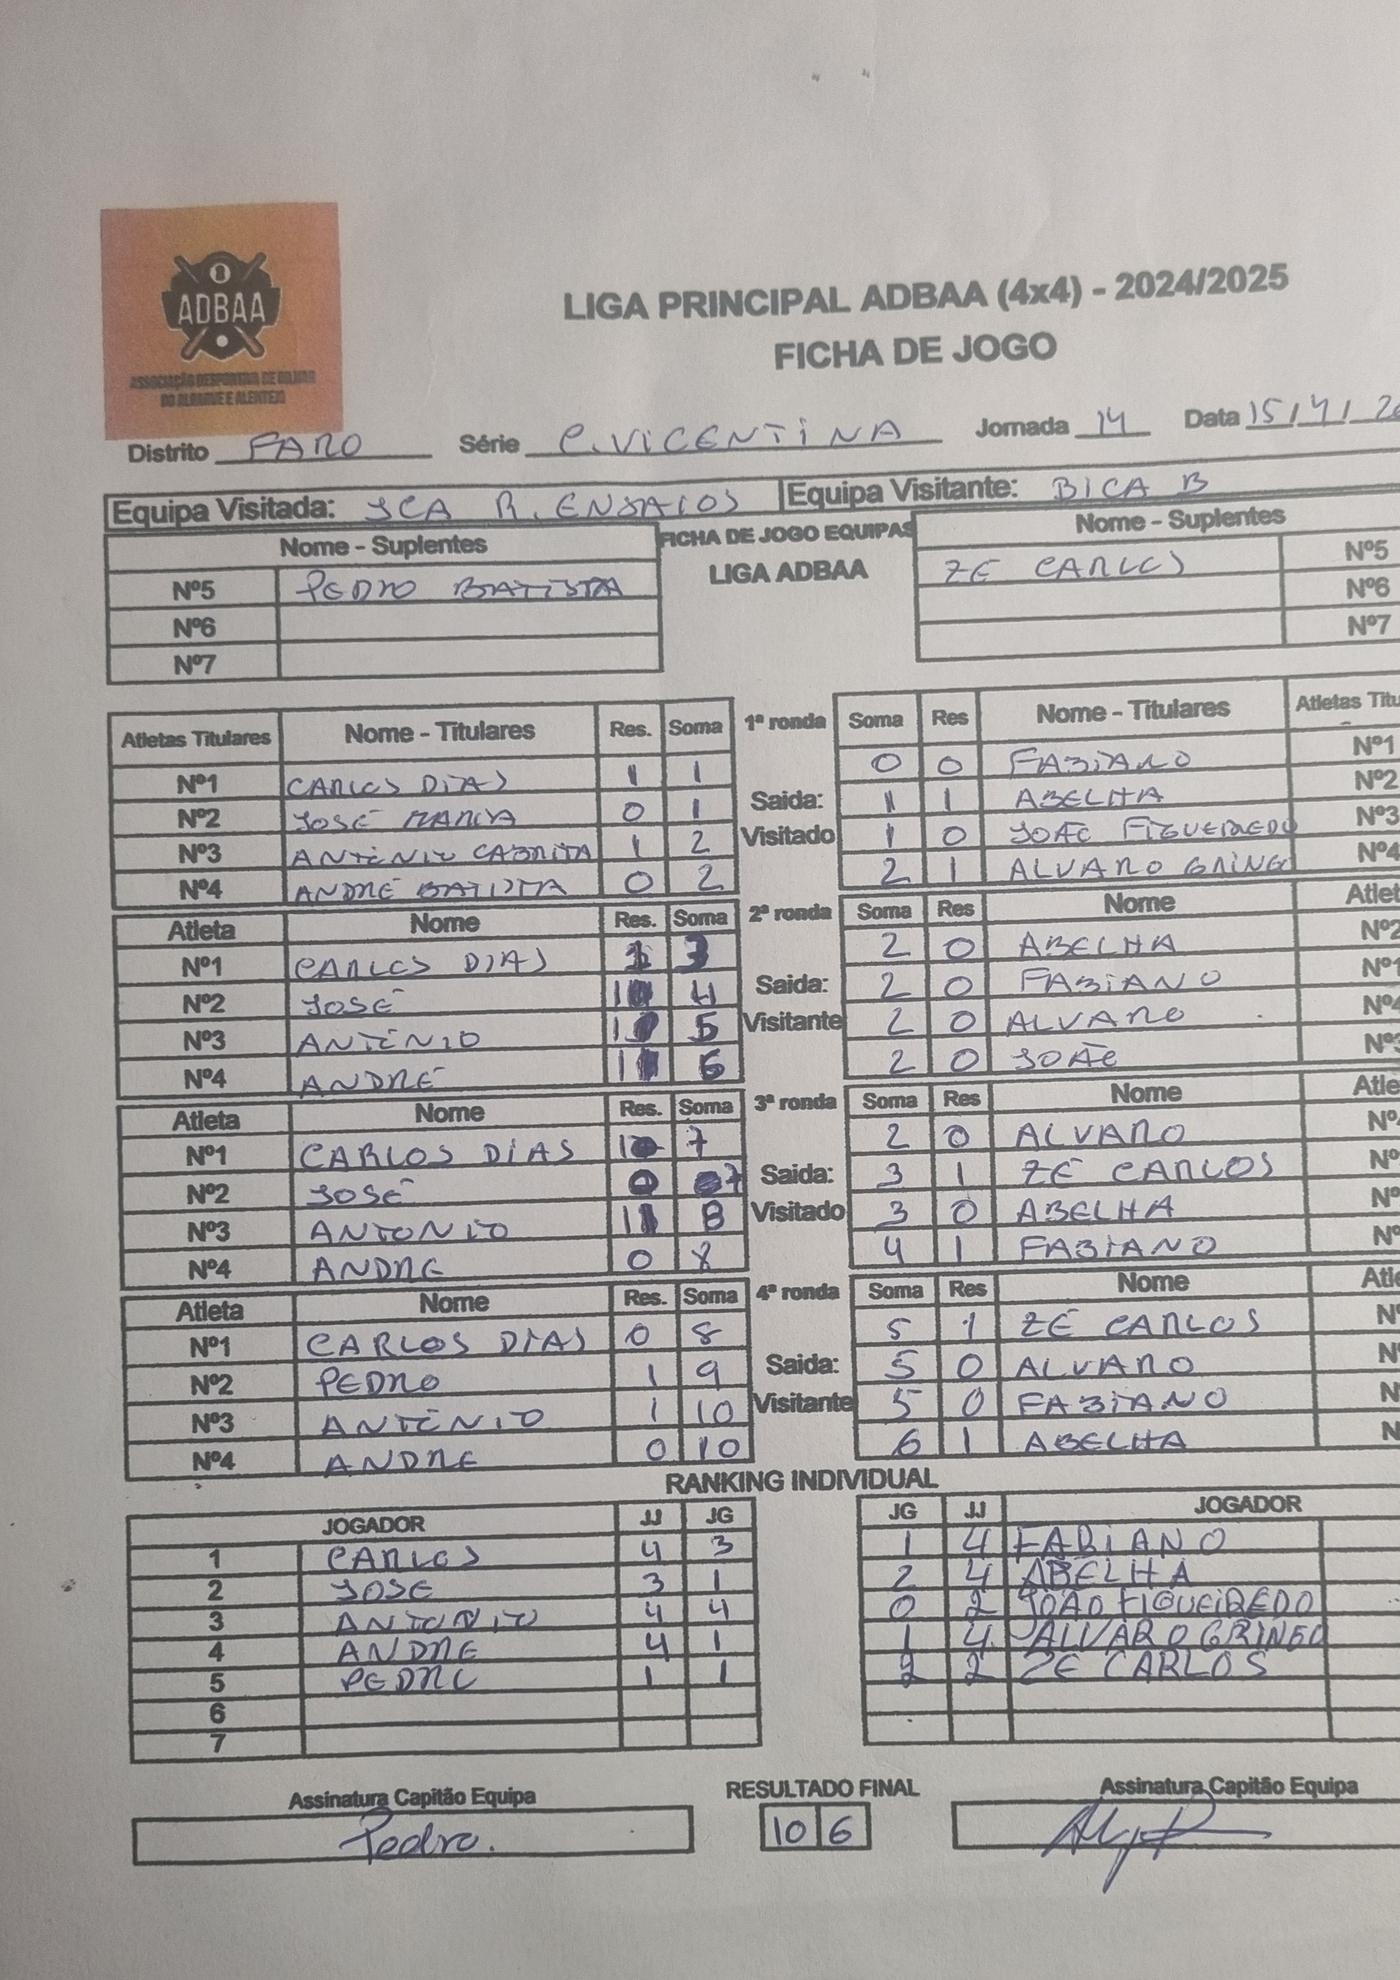 ADBAA
ASSOCIAÇÃO DESPORTIVA DE BILHAR
DO ALGARVE E ALENTEJO
LIGA PRINCIPAL ADBAA (4x4) - 2024/2025
FICHA DE JOGO
Distrito FARO Série C.VICENTINA Jornada 14 Data 15/4/20
Equipa Visitada: JCA R. ENSAIOS Equipa Visitante: BICA B
Nome - Suplentes FICHA DE JOGO EQUIPAS Nome - Suplentes
LIGA ADBAA
Nº5 PEDRO BATISTA ZE CARLOS Nº5
Nº6 Nº6
Nº7 Nº7
Atletas Titulares Nome - Titulares Res. Soma 1ª ronda Soma Res Nome - Titulares Atletas Titu
Nº1 CARLOS DIAS 1 1 0 0 FABIANO Nº1
Nº2 JOSÉ MARIA 0 1 Saida: 1 1 ABELHA Nº2
Nº3 ANTÓNIO CABRITA 1 2 Visitado 1 0 JOÃO FIGUEIREDO Nº3
Nº4 ANDRÉ BATISTA 0 2 2 1 ALVARO GRINGO Nº4
Atleta Nome Res. Soma 2ª ronda Soma Res Nome Atlet
Nº1 CARLOS DIAS 1 3 2 0 ABELHA Nº2
Nº2 JOSÉ 1 4 Saida: 2 0 FABIANO Nº1
Nº3 ANTÓNIO 1 5 Visitante 2 0 ALVARO Nº4
Nº4 ANDRÉ 1 6 2 0 JOÃO Nº3
Atleta Nome Res. Soma 3ª ronda Soma Res Nome Atle
Nº1 CARLOS DIAS 1 7 2 0 ALVARO Nº
Nº2 JOSÉ 0 7 Saida: 3 1 ZÉ CARLOS Nº
Nº3 ANTONIO 1 8 Visitado 3 0 ABELHA Nº
Nº4 ANDRE 0 8 4 1 FABIANO Nº
Atleta Nome Res. Soma 4ª ronda Soma Res Nome Atle
Nº1 CARLOS DIAS 0 8 5 1 ZÉ CARLOS N
Nº2 PEDRO 1 9 Saida: 5 0 ALVARO Nº
Nº3 ANTÓNIO 1 10 Visitante 5 0 FABIANO N
Nº4 ANDRE 0 10 6 1 ABELHA N
RANKING INDIVIDUAL
JOGADOR JJ JG JG JJ JOGADOR
1 CARLOS 4 3 1 4 FABIANO
2 JOSE 3 1 2 4 ABELHA
3 ANTONIO 4 4 0 2 JOÃO FIGUEIREDO
4 ANDRE 4 1 1 4 ALVARO GRINGO
5 PEDRO 1 1 2 2 ZE CARLOS
6
7
Assinatura Capitão Equipa RESULTADO FINAL Assinatura Capitão Equipa
Pedro. 10 6